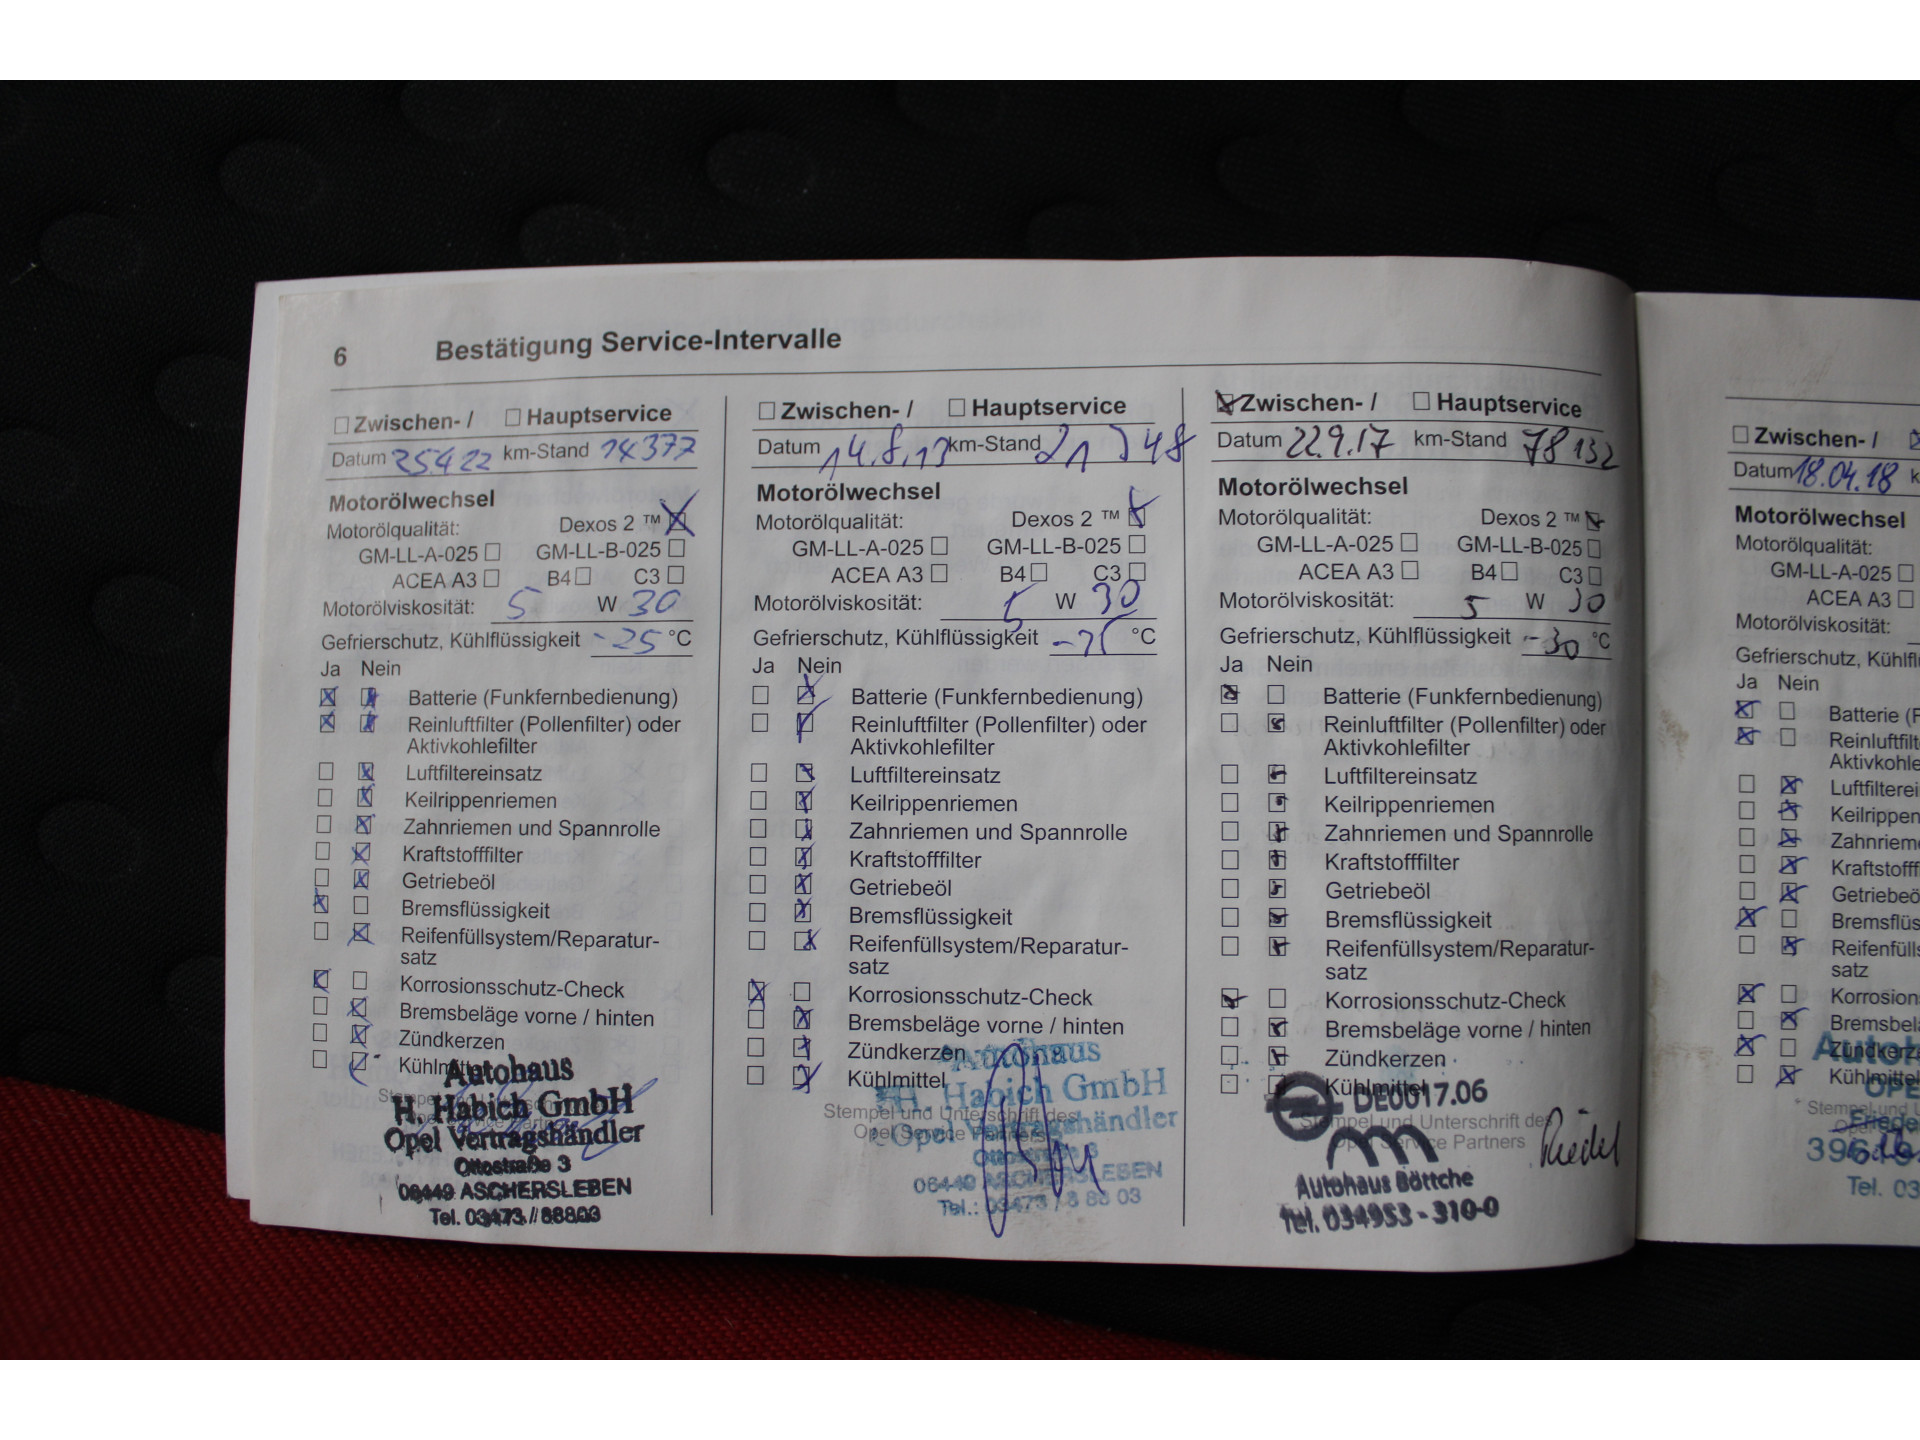 6 Bestätigung Service-Intervalle
☐ Zwischen- / ☐ Hauptservice
Datum 25.4.12 km-Stand 14377
Motorölwechsel
Motorölqualität: Dexos 2 ™ ☒
GM-LL-A-025 ☐ GM-LL-B-025 ☐
ACEA A3 ☐ B4 ☐ C3 ☐
Motorölviskosität: 5 W 30
Gefrierschutz, Kühlflüssigkeit -25 °C
Ja Nein
☒ ☒ Batterie (Funkfernbedienung)
☒ ☒ Reinluftfilter (Pollenfilter) oder
Aktivkohlefilter
☐ ☒ Luftfiltereinsatz
☐ ☒ Keilrippenriemen
☐ ☒ Zahnriemen und Spannrolle
☐ ☒ Kraftstofffilter
☐ ☒ Getriebeöl
☒ ☐ Bremsflüssigkeit
☐ ☒ Reifenfüllsystem/Reparatur-
satz
☒ ☐ Korrosionsschutz-Check
☐ ☒ Bremsbeläge vorne / hinten
☐ ☒ Zündkerzen
☐ ☒ Kühlmittel
Autohaus
H. Habich GmbH
Opel Vertragshändler
Ottostraße 3
06449 ASCHERSLEBEN
Tel. 03473 / 88803
☐ Zwischen- / ☐ Hauptservice
Datum 14.8.13 km-Stand 21 748
Motorölwechsel
Motorölqualität: Dexos 2 ™ ☒
GM-LL-A-025 ☐ GM-LL-B-025 ☐
ACEA A3 ☐ B4 ☐ C3 ☐
Motorölviskosität: 5 W 30
Gefrierschutz, Kühlflüssigkeit °C
Ja Nein
☐ ☒ Batterie (Funkfernbedienung)
☐ ☒ Reinluftfilter (Pollenfilter) oder
Aktivkohlefilter
☐ ☒ Luftfiltereinsatz
☐ ☒ Keilrippenriemen
☐ ☒ Zahnriemen und Spannrolle
☐ ☒ Kraftstofffilter
☐ ☒ Getriebeöl
☐ ☒ Bremsflüssigkeit
☐ ☒ Reifenfüllsystem/Reparatur-
satz
☒ ☐ Korrosionsschutz-Check
☐ ☒ Bremsbeläge vorne / hinten
☐ ☒ Zündkerzen
☐ ☒ Kühlmittel
Stempel und Unterschrift des
Opel Service Partners
Autohaus
H. Habich GmbH
Opel Vertragshändler
Ottostraße 3
06449 ASCHERSLEBEN
Tel.: 03473 / 8 88 03
☒ Zwischen- / ☐ Hauptservice
Datum 22.9.17 km-Stand 78 132
Motorölwechsel
Motorölqualität: Dexos 2 ™ ☒
GM-LL-A-025 ☐ GM-LL-B-025 ☐
ACEA A3 ☐ B4 ☐ C3 ☐
Motorölviskosität: 5 W 30
Gefrierschutz, Kühlflüssigkeit -30 °C
Ja Nein
☒ ☐ Batterie (Funkfernbedienung)
☐ ☒ Reinluftfilter (Pollenfilter) oder
Aktivkohlefilter
☐ ☒ Luftfiltereinsatz
☐ ☒ Keilrippenriemen
☐ ☒ Zahnriemen und Spannrolle
☐ ☒ Kraftstofffilter
☐ ☒ Getriebeöl
☐ ☒ Bremsflüssigkeit
☐ ☒ Reifenfüllsystem/Reparatur-
satz
☒ ☐ Korrosionsschutz-Check
☐ ☒ Bremsbeläge vorne / hinten
☐ ☒ Zündkerzen
☐ ☒ Kühlmittel
DE0017.06
Stempel und Unterschrift des
Opel Service Partners
Autohaus Böttche
Tel. 034953 - 310-0
☐ Zwischen- /
Datum 18.04.18 k
Motorölwechsel
Motorölqualität:
GM-LL-A-025 ☐
ACEA A3 ☐
Motorölviskosität:
Gefrierschutz, Kühlflü
Ja Nein
☒ ☐ Batterie (F
☒ ☐ Reinluftfilt
Aktivkohlefe
☐ ☒ Luftfilterei
☐ ☒ Keilrippen
☐ ☒ Zahnrieme
☐ ☒ Kraftstofff
☐ ☒ Getriebeö
☒ ☐ Bremsflüs
☐ ☒ Reifenfülls
satz
☒ ☐ Korrosions
☐ ☒ Bremsbelä
☒ ☐ Zündkerze
☐ ☒ Kühlmittel
Stempel und U
OPE
Friede
Tel. 03